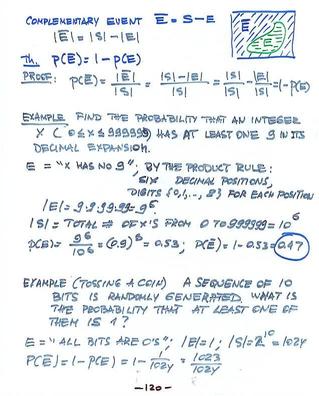 COMPLEMENTARY EVENT E̅ = S-E
|E̅| = |S| - |E|
E
E̅
Th. P(E̅) = 1 - P(E)
PROOF: P(E̅) = |E̅|/|S| = |S|-|E|/|S| = |S|/|S| - |E|/|S| = 1 - P(E)
EXAMPLE FIND THE PROBABILITY THAT AN INTEGER
X (0≤x≤999999) HAS AT LEAST ONE 9 IN ITS
DECIMAL EXPANSION.
E = "X HAS NO 9", BY THE PRODUCT RULE:
SIX DECIMAL POSITIONS,
DIGITS {0,1,.., 8} FOR EACH POSITION
|E| = 9·9·9·9·9·9 = 9⁶
|S| = TOTAL # OF X'S FROM 0 TO 999999 = 10⁶
P(E) = 9⁶/10⁶ = (0.9)⁶ = 0.53; P(E̅) = 1 - 0.53 = 0.47
EXAMPLE (TOSSING A COIN) A SEQUENCE OF 10
BITS IS RANDOMLY GENERATED. WHAT IS
THE PROBABILITY THAT AT LEAST ONE OF
THEM IS 1?
E = "ALL BITS ARE 0'S"; |E| = 1; |S| = 2¹⁰ = 1024
P(E̅) = 1 - P(E) = 1 - 1/1024 = 1023/1024
-120-